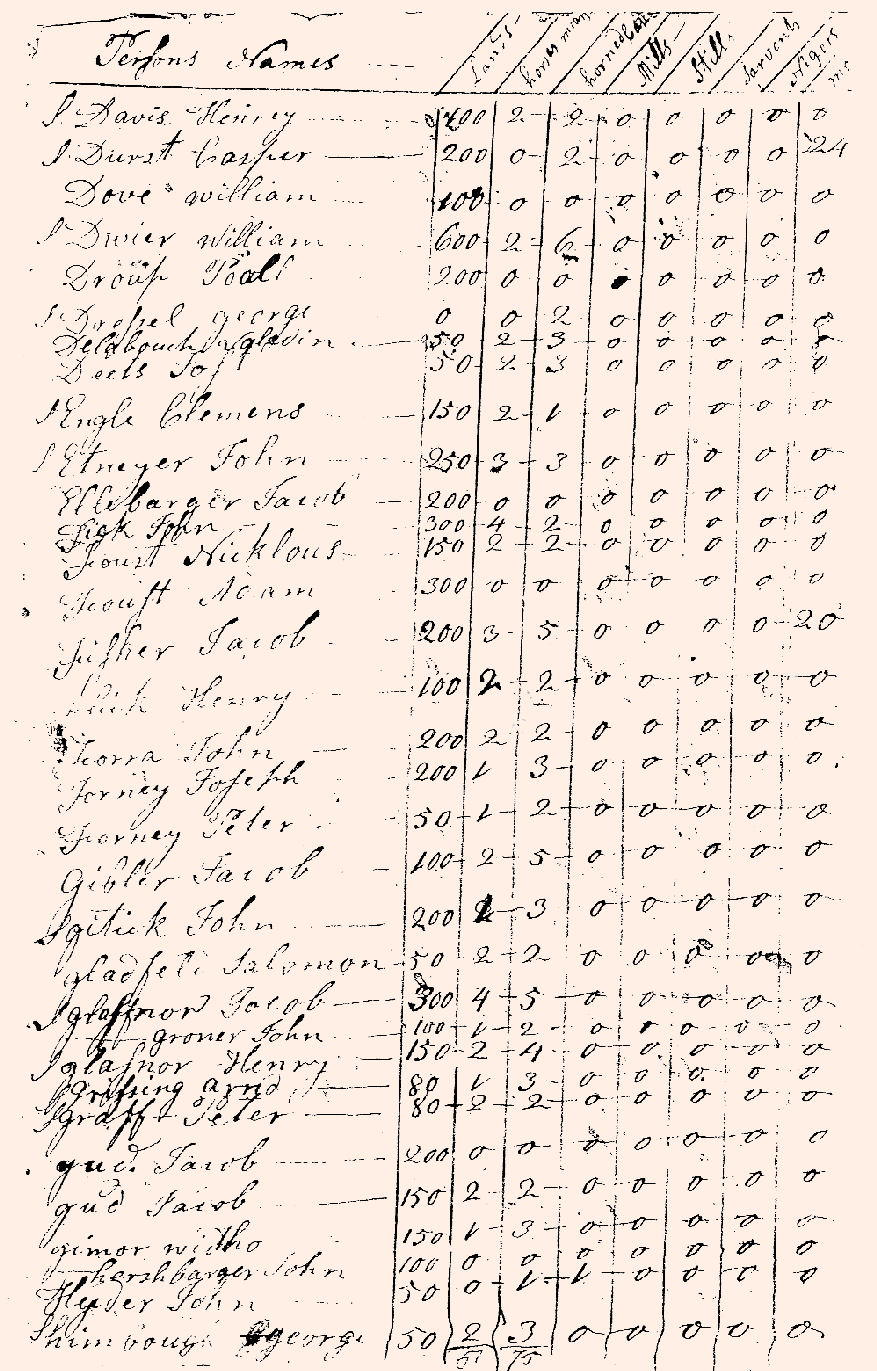 Persons Names Lands horses mares horned Cattle Mills Still Sarvants Nigors
S Davis Henry 400 2 2 0 0 0 0 0
S Durst Casper 200 0 2 0 0 0 0 24
Dove william 100 0 0 0 0 0 0 0
S Dwier william 600 2 6 0 0 0 0 0
200 0 0 0 0 0 0 0
S george 0 0 2 0 0 0 0 0
50 2 3 0 0 0 0 0
Deets Jos 50 2 3 0 0 0 0 0
S Engle Clemens 150 2 1 0 0 0 0 0
S Etneyer John 250 3 3 0 0 0 0 0
Ellsbarger Jacob 200 0 0 0 0 0 0 0
Fick John 300 4 2 0 0 0 0 0
Foust Nicklous 150 2 2 0 0 0 0 0
Foust Adam 300 0 0 0 0 0 0 0
Fisher Jacob 200 3 5 0 0 0 0 20
Henry 100 2 2 0 0 0 0 0
Forra John 200 2 2 0 0 0 0 0
Forney Joseph 200 1 3 0 0 0 0 0
Forney Peter 50 1 2 0 0 0 0 0
Gibler Jacob 100 2 5 0 0 0 0 0
S John 200 2 3 0 0 0 0 0
gladfelt Salomon 50 2 2 0 0 0 0 0
S glassnor Jacob 300 4 5 0 0 0 0 0
groner John 100 1 2 0 0 0 0 0
S glasnor Henry 150 2 4 0 0 0 0 0
80 1 3 0 0 0 0 0
S grafft Peter 80 2 2 0 0 0 0 0
gud Jacob 200 0 0 0 0 0 0 0
gud Jacob 150 2 2 0 0 0 0 0
gimor 150 1 3 0 0 0 0 0
hershbarger John 100 0 0 0 0 0 0 0
Hyder John 50 0 1 1 0 0 0 0
george 50 2 3 0 0 0 0 0